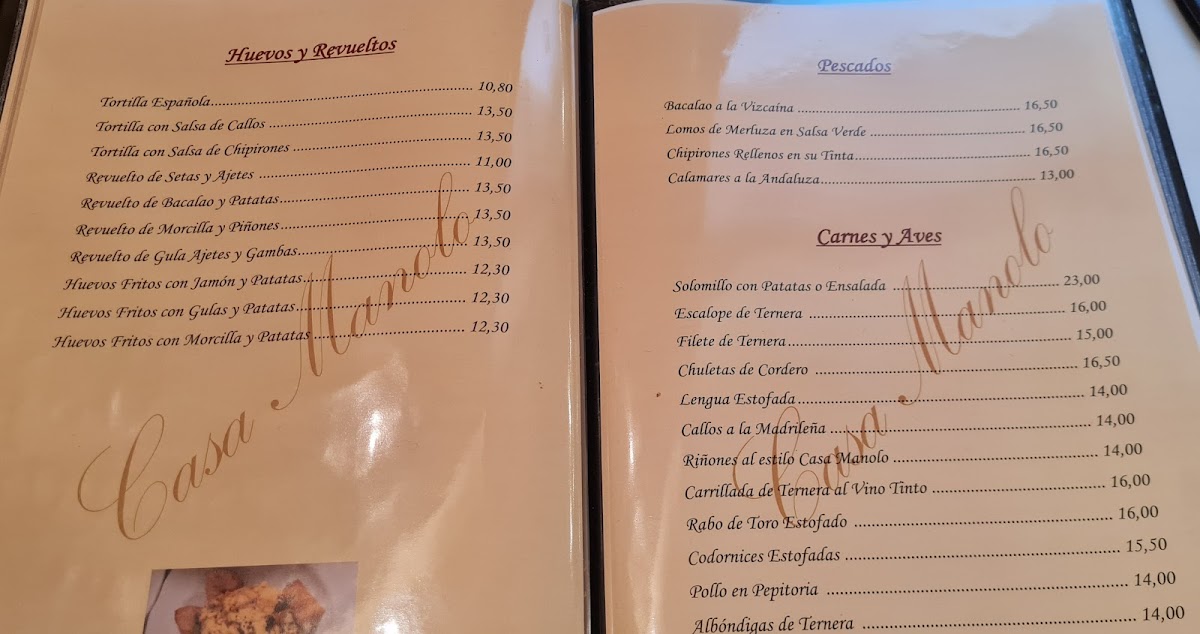 Huevos y Revueltos
Tortilla Española 10,80
Tortilla con Salsa de Callos 13,50
Tortilla con Salsa de Chipirones 13,50
Revuelto de Setas y Ajetes 11,00
Revuelto de Bacalao y Patatas 13,50
Revuelto de Morcilla y Piñones 13,50
Revuelto de Gula Ajetes y Gambas 13,50
Huevos Fritos con Jamón y Patatas 12,30
Huevos Fritos con Gulas y Patatas 12,30
Huevos Fritos con Morcilla y Patatas 12,30
Casa Manolo
Pescados
Bacalao a la Vizcaína 16,50
Lomos de Merluza en Salsa Verde 16,50
Chipirones Rellenos en su Tinta 16,50
Calamares a la Andaluza 13,00
Carnes y Aves
Solomillo con Patatas o Ensalada 23,00
Escalope de Ternera 16,00
Filete de Ternera 15,00
Chuletas de Cordero 16,50
Lengua Estofada 14,00
Callos a la Madrileña 14,00
Riñones al estilo Casa Manolo 14,00
Carrillada de Ternera al Vino Tinto 16,00
Rabo de Toro Estofado 16,00
Codornices Estofadas 15,50
Pollo en Pepitoria 14,00
Albóndigas de Ternera 14,00
Casa Manolo